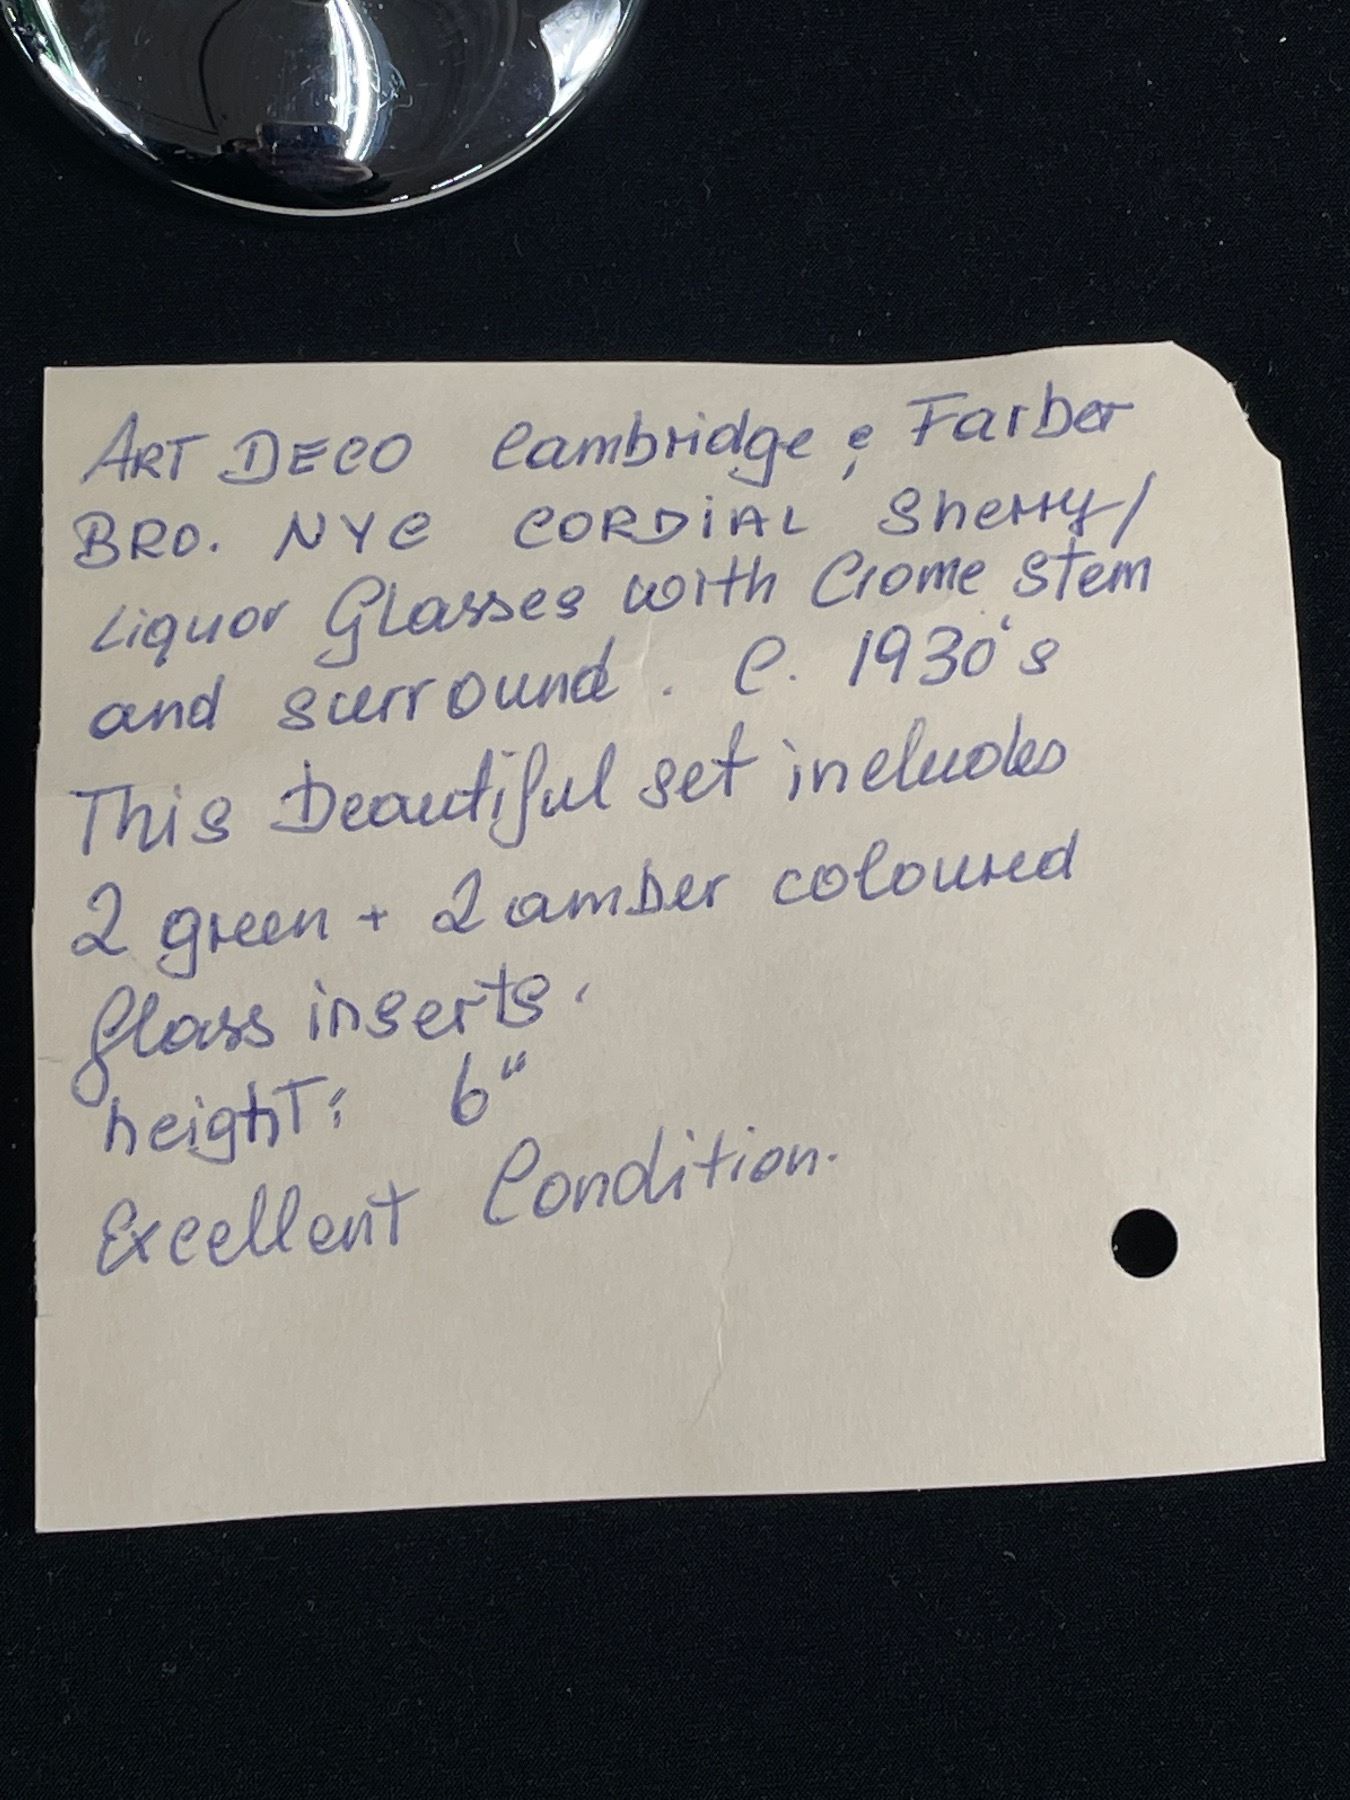 ART DECO Cambridge & Farber
BRO. NYC CORDIAL Sherry/
Liquor Glasses with Crome Stem
and surround. C. 1930's
This beautiful set includes
2 green + 2 amber coloured
glass inserts.
height: 6"
Excellent Condition.